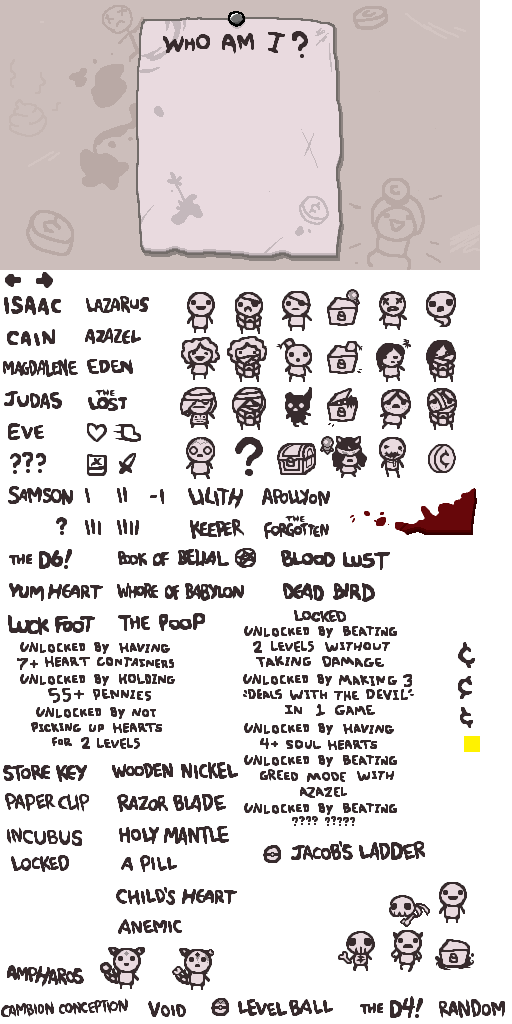 WHO AM I?
ISAAC LAZARUS
CAIN AZAZEL
MAGDALENE EDEN
JUDAS THE LOST
EVE
???
?
SAMSON I II -I LILITH APOLLYON
? III IIII KEEPER THE FORGOTTEN
THE D6! BOOK OF BELIAL BLOOD LUST
YUM HEART WHORE OF BABYLON DEAD BIRD
LUCK FOOT THE POOP
LOCKED
UNLOCKED BY HAVING
7+ HEART CONTAINERS
UNLOCKED BY HOLDING
55+ PENNIES
UNLOCKED BY NOT
PICKING UP HEARTS
FOR 2 LEVELS
UNLOCKED BY BEATING
2 LEVELS WITHOUT
TAKING DAMAGE
UNLOCKED BY MAKING 3
"DEALS WITH THE DEVIL"
IN 1 GAME
UNLOCKED BY HAVING
4+ SOUL HEARTS
UNLOCKED BY BEATING
GREED MODE WITH
AZAZEL
UNLOCKED BY BEATING
???? ?????
¢
¢
¢
STORE KEY WOODEN NICKEL
PAPER CLIP RAZOR BLADE
INCUBUS HOLY MANTLE
LOCKED A PILL
JACOB'S LADDER
CHILD'S HEART
ANEMIC
AMPHAROS
CAMBION CONCEPTION VOID LEVEL BALL THE D4! RANDOM